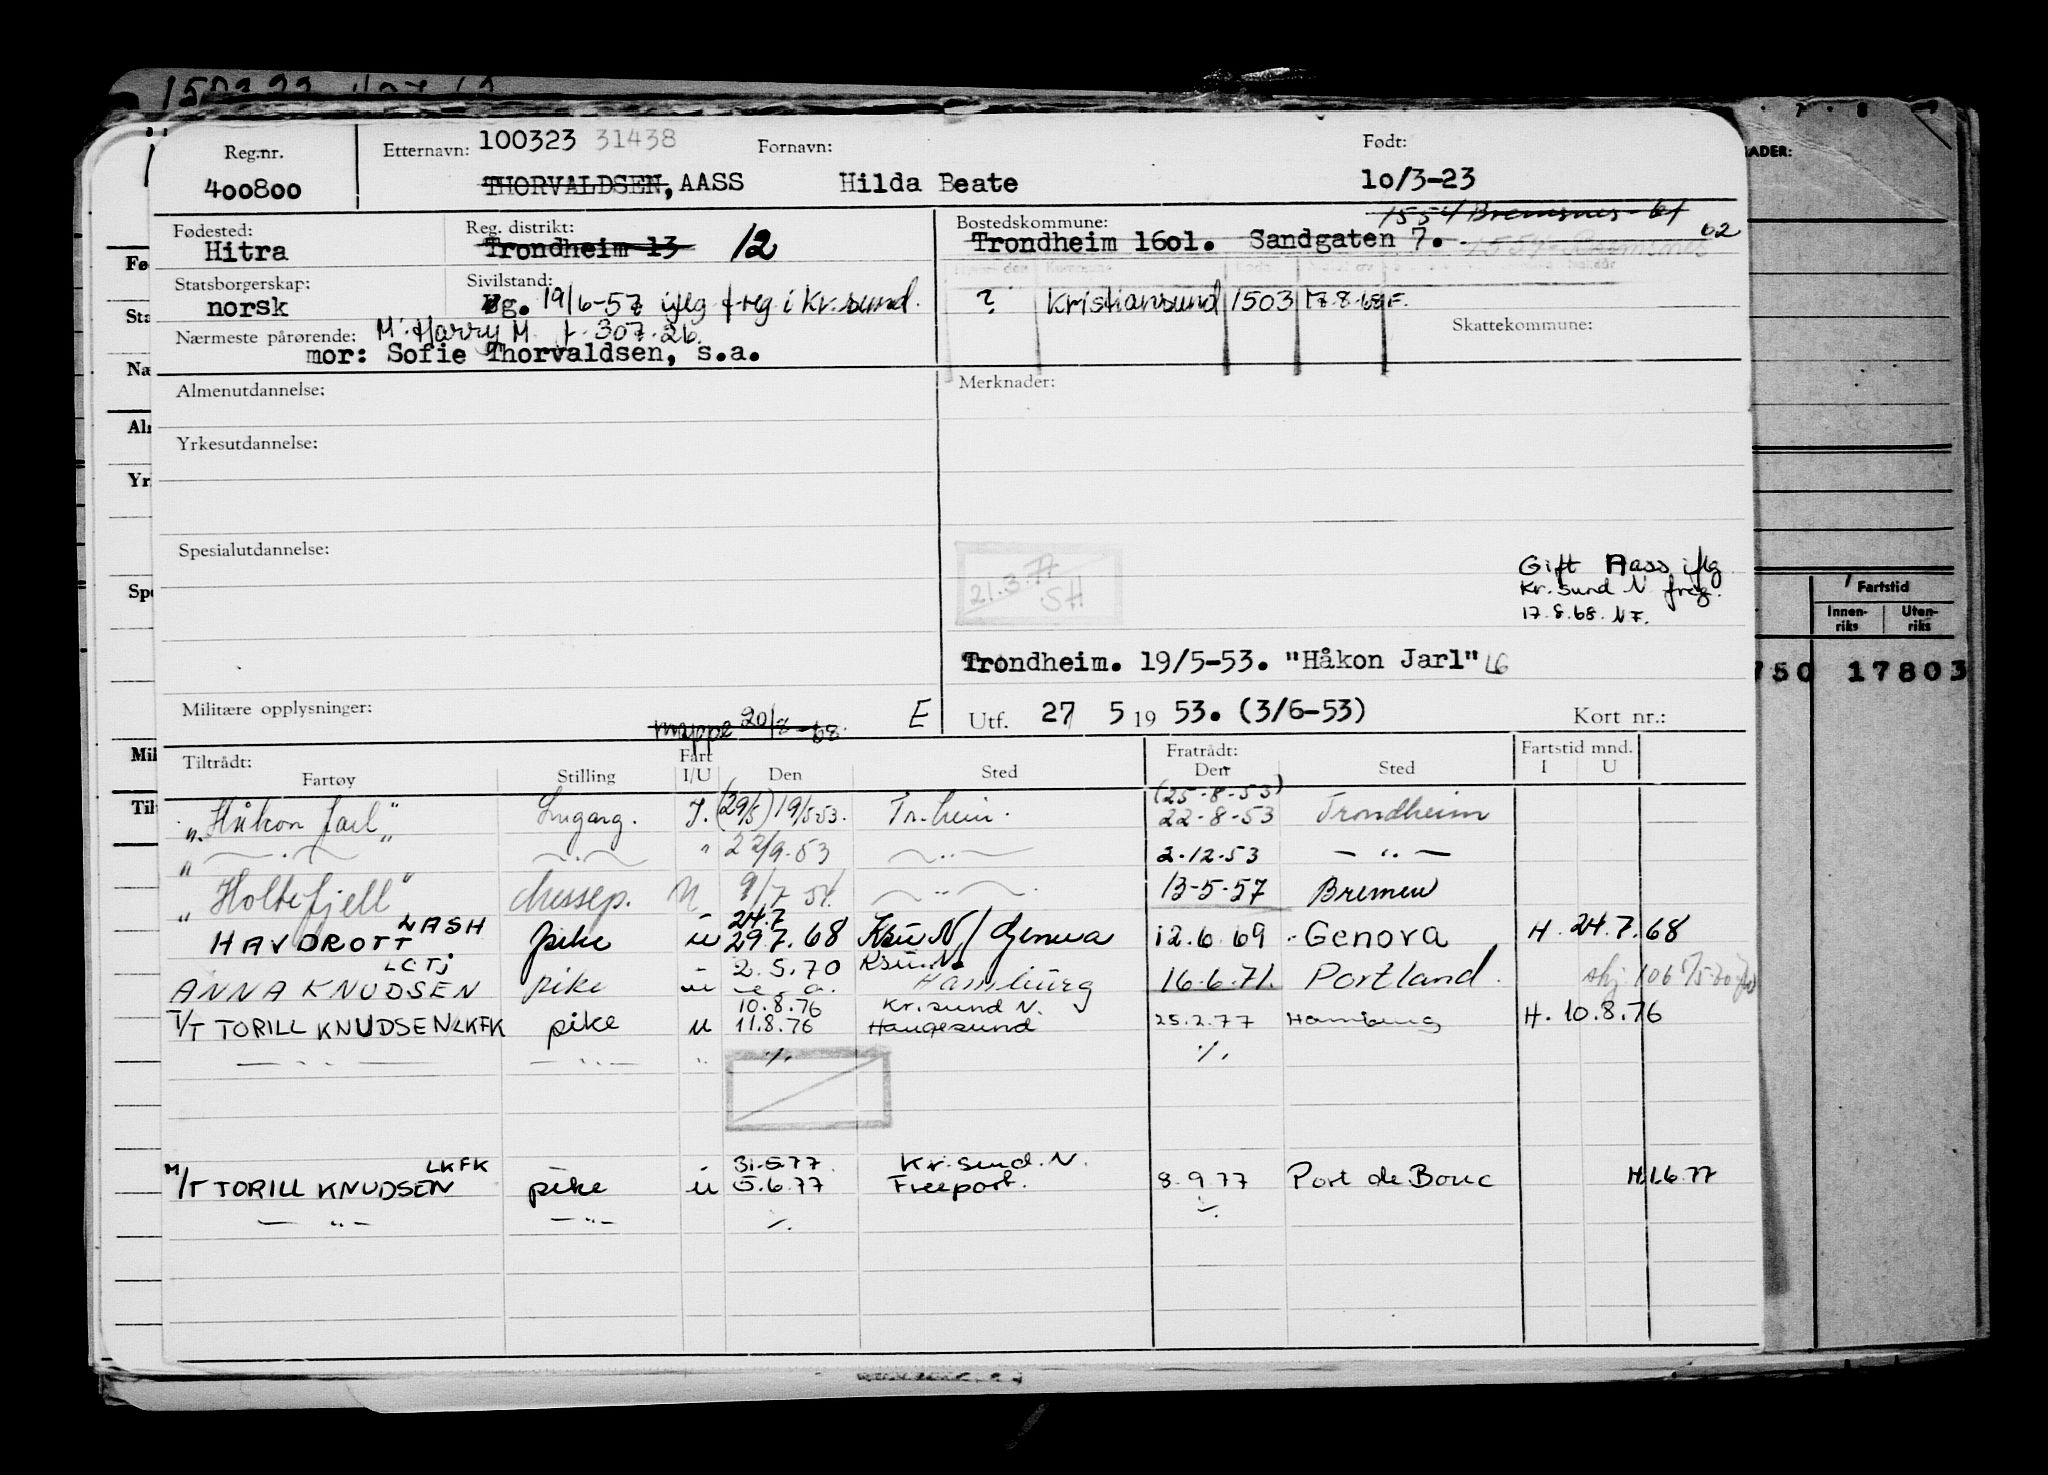 Reg.nr. Etternavn: 100323 31438 Fornavn: Født:
400800 THORVALDSEN, AASS Hilda Beate 10/3-23
1554 Bremsnes
Fødested: Reg. distrikt: Bostedskommune:
Hitra Trondheim 13 12 Trondheim 1601. Sandgaten 7. 62
Statsborgerskap: Sivilstand:
norsk g. 19/6-57 iflg freg i Kr.sund. ? Kristiansund 1503 17.8.68
Nærmeste pårørende: M: Harry M. f. 307.26. Skattekommune:
mor: Sofie Thorvaldsen, s.a.
Almenutdannelse: Merknader:
Yrkesutdannelse:
Spesialutdannelse:
21.3.77
SH
Gift Aass iflg
Kr.sund N freg.
17.8.68. NF.
Trondheim. 19/5-53. "Håkon Jarl"
Militære opplysninger: mappe 20/8-68. E Utf. 27 5 19 53. (3/6-53) Kort nr.:
Tiltrådt: Fart Fratrådt: Fartstid mnd.
Fartøy Stilling I/U Den Sted Den Sted I U
(25-8-53)
"Håkon Jarl" Lugarg. I. (29/5) 19/5 53. Tr.heim. 22-8-53 Trondheim
" — " — — " — " 22/9.53 — " — 2.12.53 — " —
"Holtefjell" Messep. U 9/7 54. — " — 13-5-57 Bremen
LASH 24.7
HAVDROTT pike u 29.7.68 Ksu N/ Genova 12.6.69 Genova H. 24.7.68
LCTJ 2.5.70 Ksu.N.
ANNA KNUDSEN pike u Hamburg 16.6.71. Portland
10.8.76 Kr.sund N.
T/T TORILL KNUDSEN LKFK pike u 11.8.76 Haugesund 25.2.77 Hamburg H. 10.8.76
— " — — " — " ./. ./.
LKFK 31.5.77. Kr.sund.N.
M/T TORILL KNUDSEN pike u 5.6.77 Freeport. 8.9.77 Port de Bouc H.1.6.77
— " — — " — ./. ./.
ADER:
Fartstid
Innen-
riks Uten-
riks
750 17803